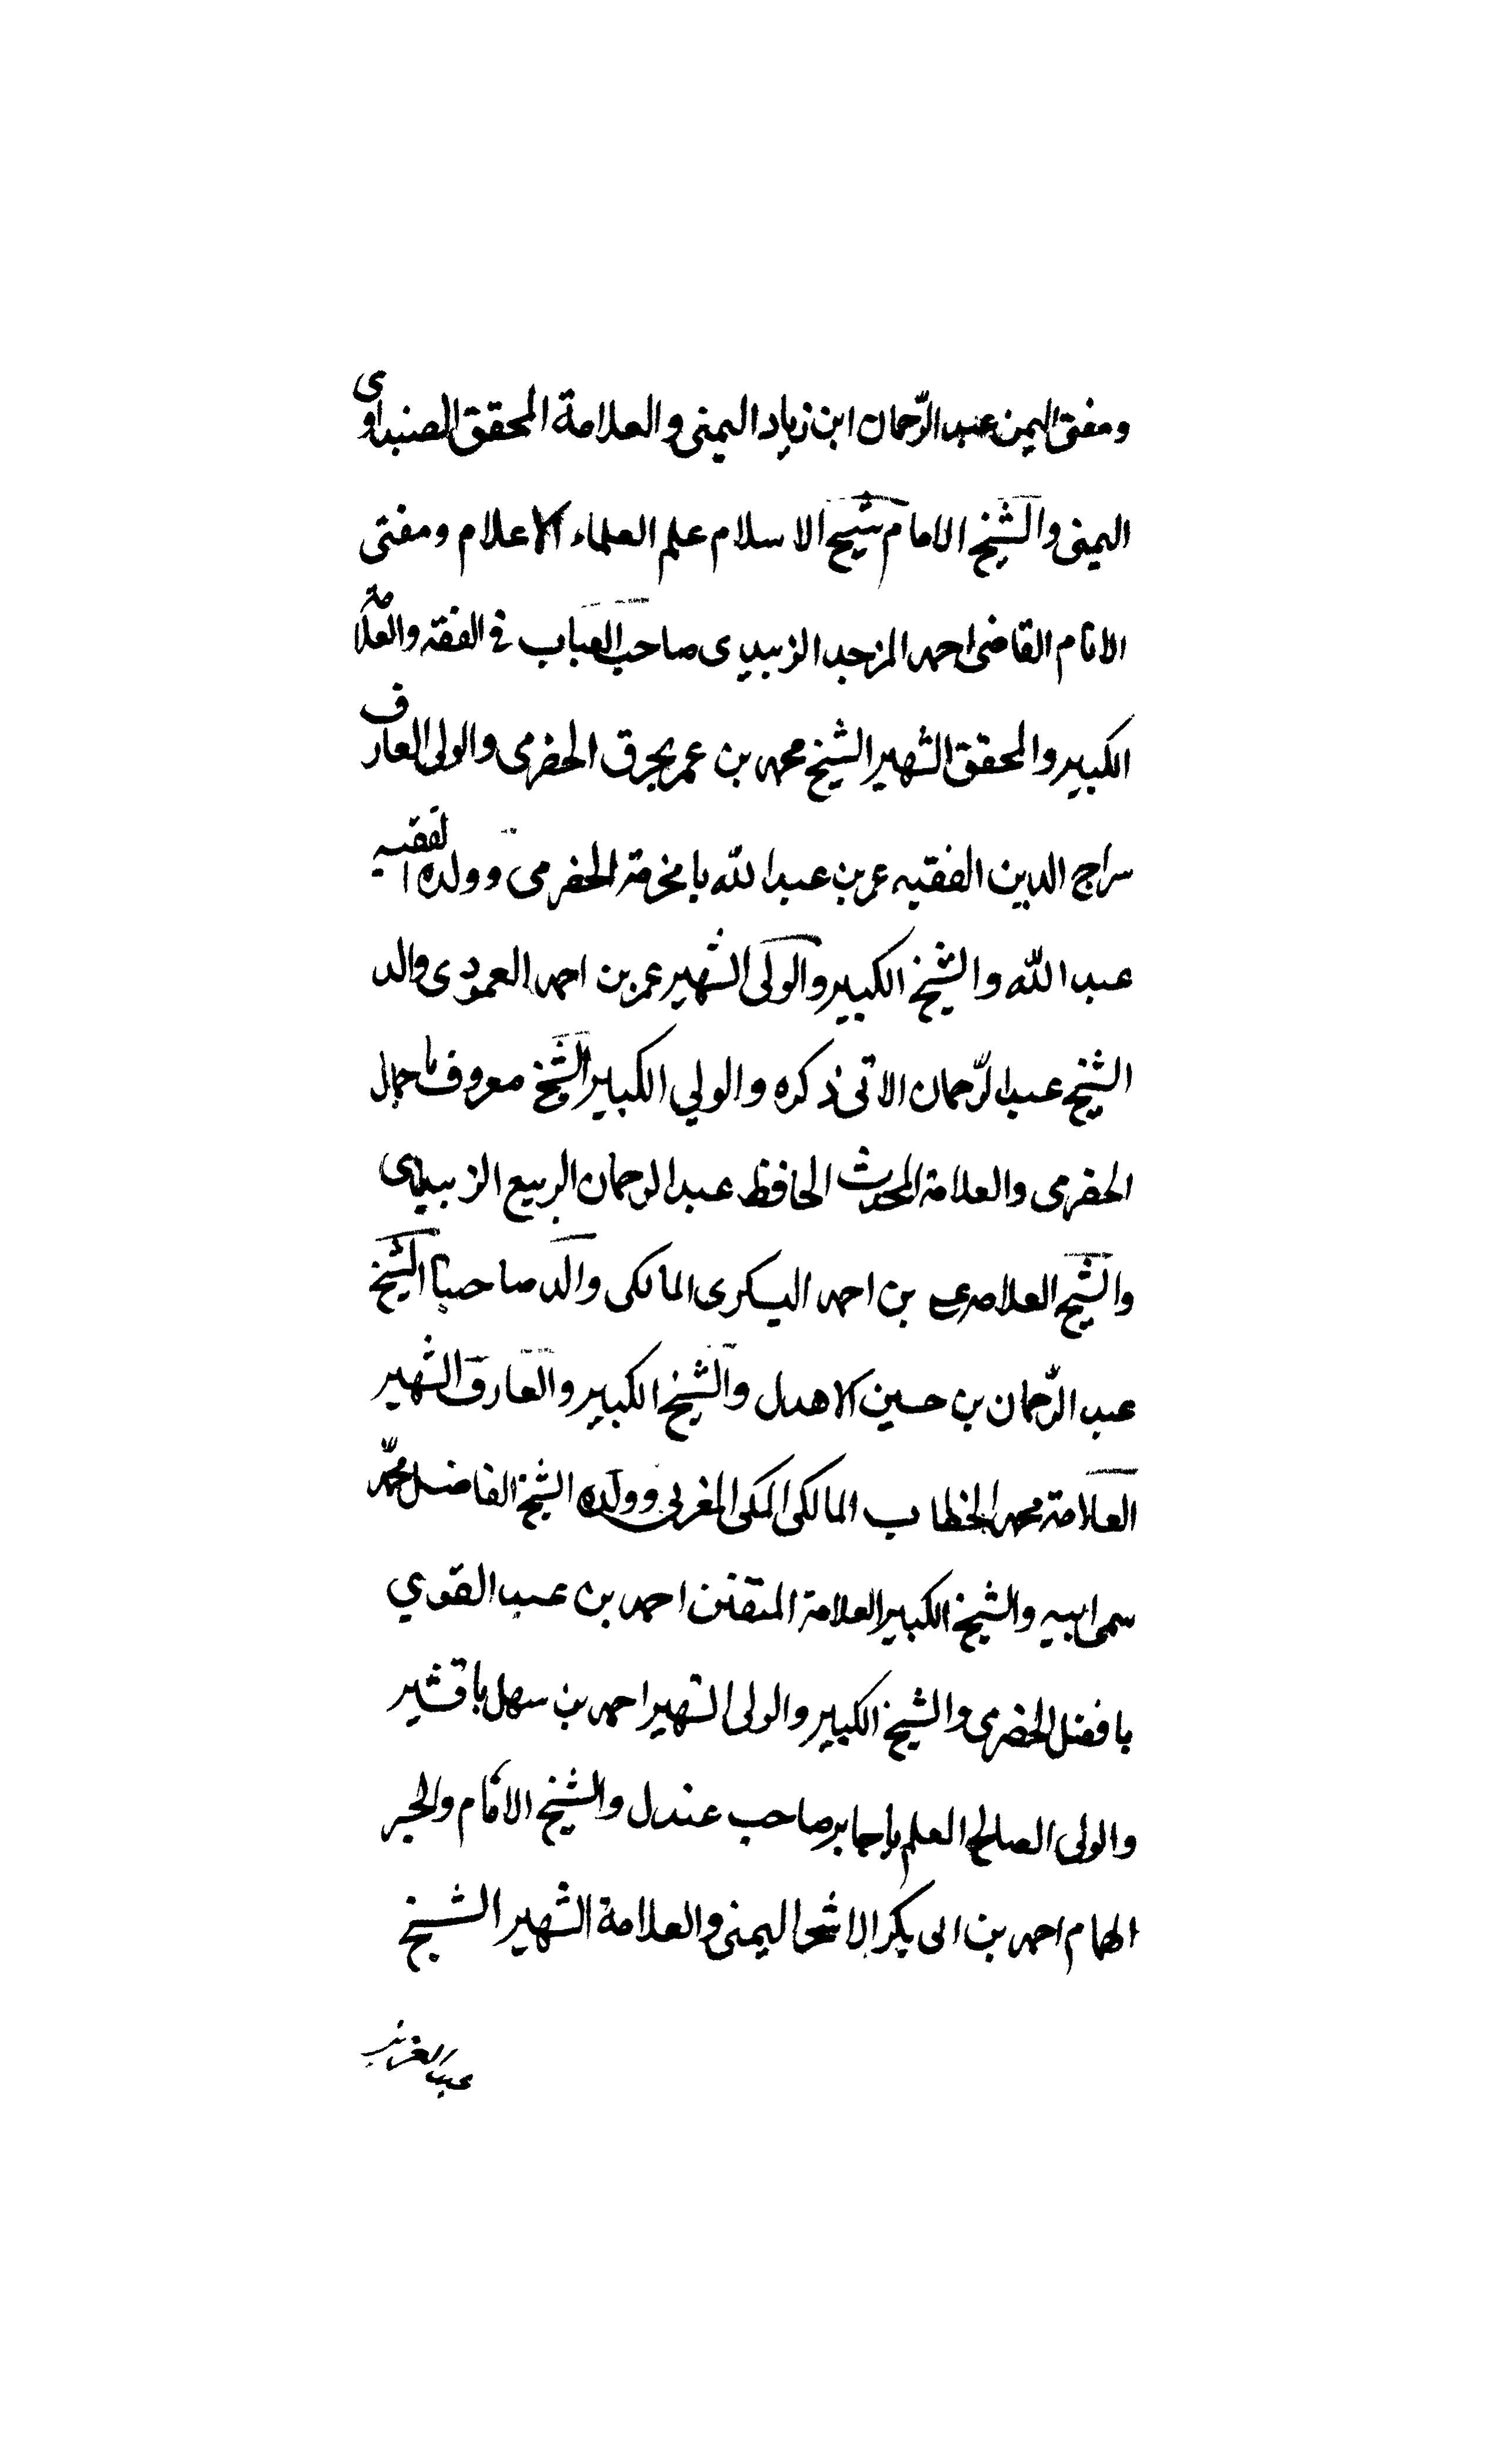 ومفتى اليمن عبد الرّحمان ابن زياد اليمنى والعلامة المحقق الصنبداوى
اليمنى والشيخ الامام شيخ الاسلام علم العلماء الاعلام ومفتى
الانام القاضى احمد المزجد الزبيدى صاحب العباب فى الفقه والعلامة
الكبير والمحقق الشهير الشيخ محمد بن عمر بحرق الحضرمى والولى العارف
سراج الدين الفقيه عمر بن عبد الله بامخرمة الحضرمى وولده الفقيه
عبد الله والشيخ الكبير والولى الشهير عمر بن احمد العمودى والد
الشيخ عبد الرّحمان الاتى ذكره والولي الكبير الشيخ معروف باجمال
الحضرمى والعلامة المحدث الحافظ عبد الرحمان الربيع الزبيدى
والشيخ العلامة بن احمد اليسكرى المالكى والد صاحبنا الشيخ
عبد الرّحمان بن حسين الاهدل والشيخ الكبير والعارف الشهير
العلامة محمد الخطاب المالكى المكى المغربى وولده الشيخ الفاضل محمّد
سمى ابيه والشيخ الكبير العلامة المتفنن احمد بن عبد القوي
بافضل الحضرمى والشيخ الكبير والولى الشهير احمد بن سهل باقشير
والولى الصالح العلم باجابر صاحب عندل والشيخ الامام والحبر
الهمام احمد بن ابى بكر الاشخر اليمنى والعلامة الشهير الشيخ
عبد العزيز